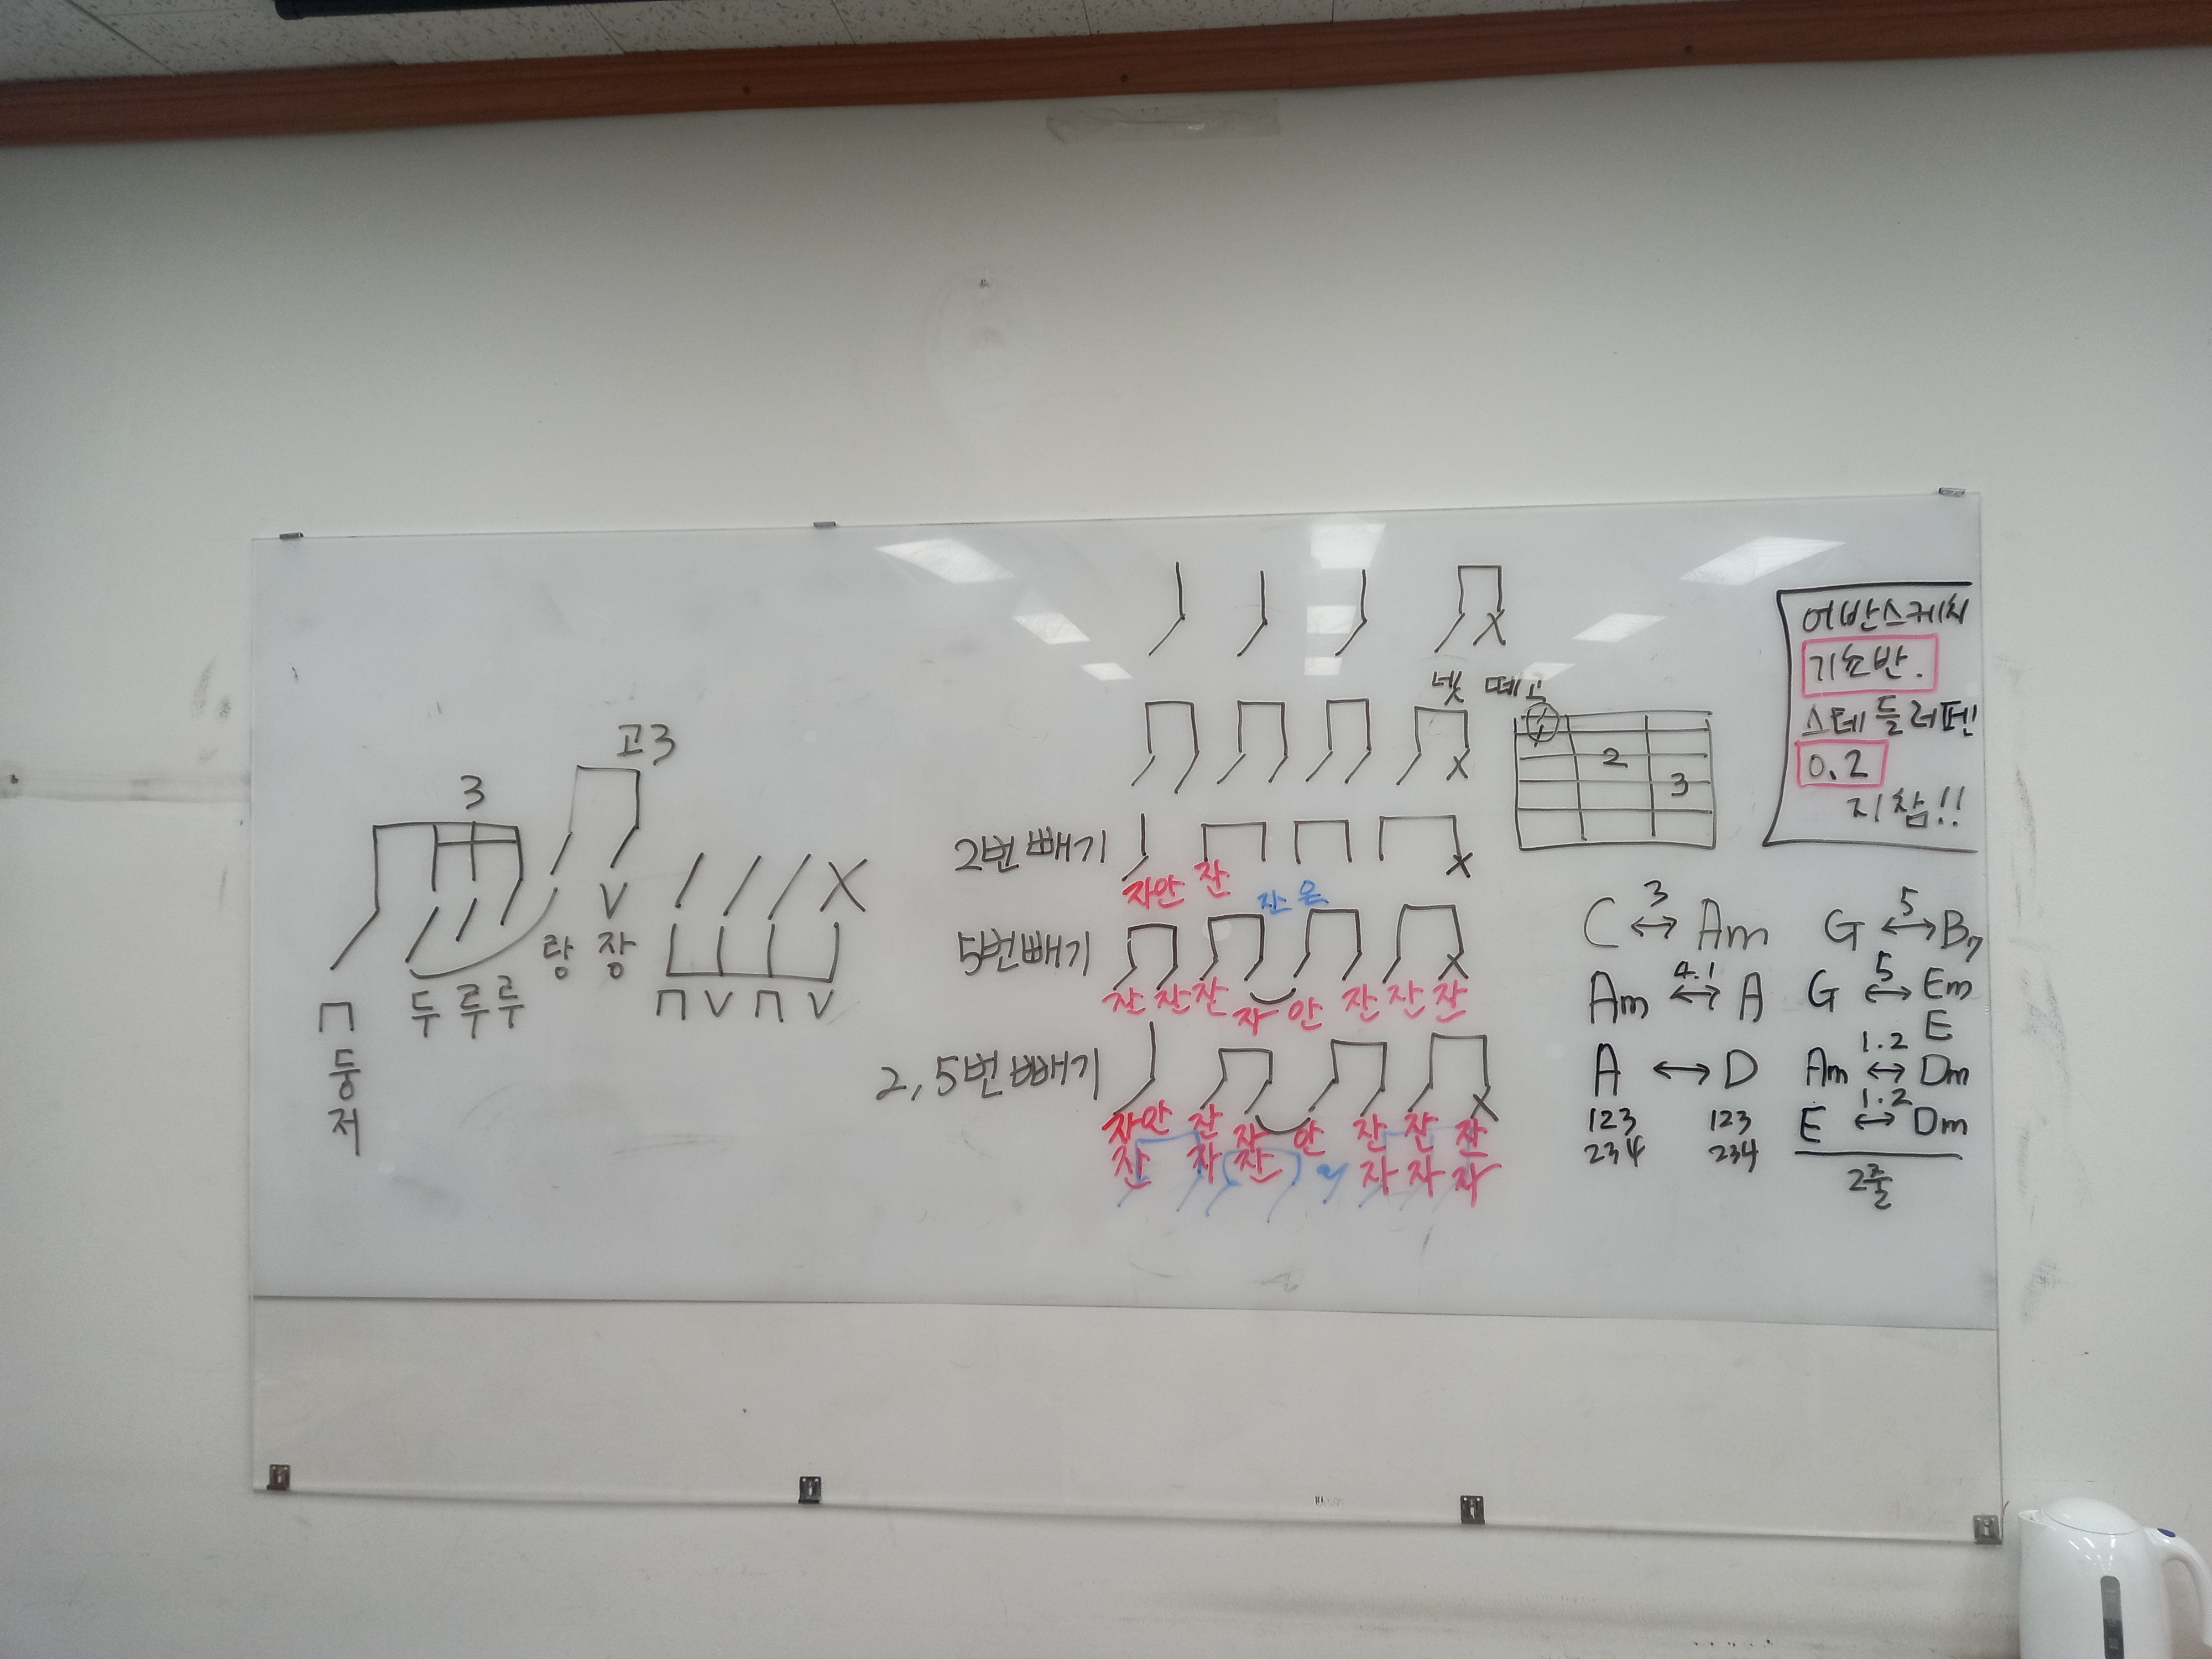 고3
3
V
탕 장
두 루루
⊓ V ⊓ V
⊓
둥
저
넷 떼고
2
3
2번빼기
자안 잔
잔 은
5번빼기
잔 잔 잔 자 안 잔 잔 잔
2,5번빼기
자안 잔 자 안 잔 잔 잔
잔 자 잔 자 자 자
어반스케치
기초반.
스테들러펜
0.2
지참!!
C ↔ Am
3
Am ↔ A
4.1
A ↔ D
123 123
234 234
G ↔ B7
5
G ↔ Em
5
E
Am ↔ Dm
1.2
E ↔ Dm
1.2
2줄